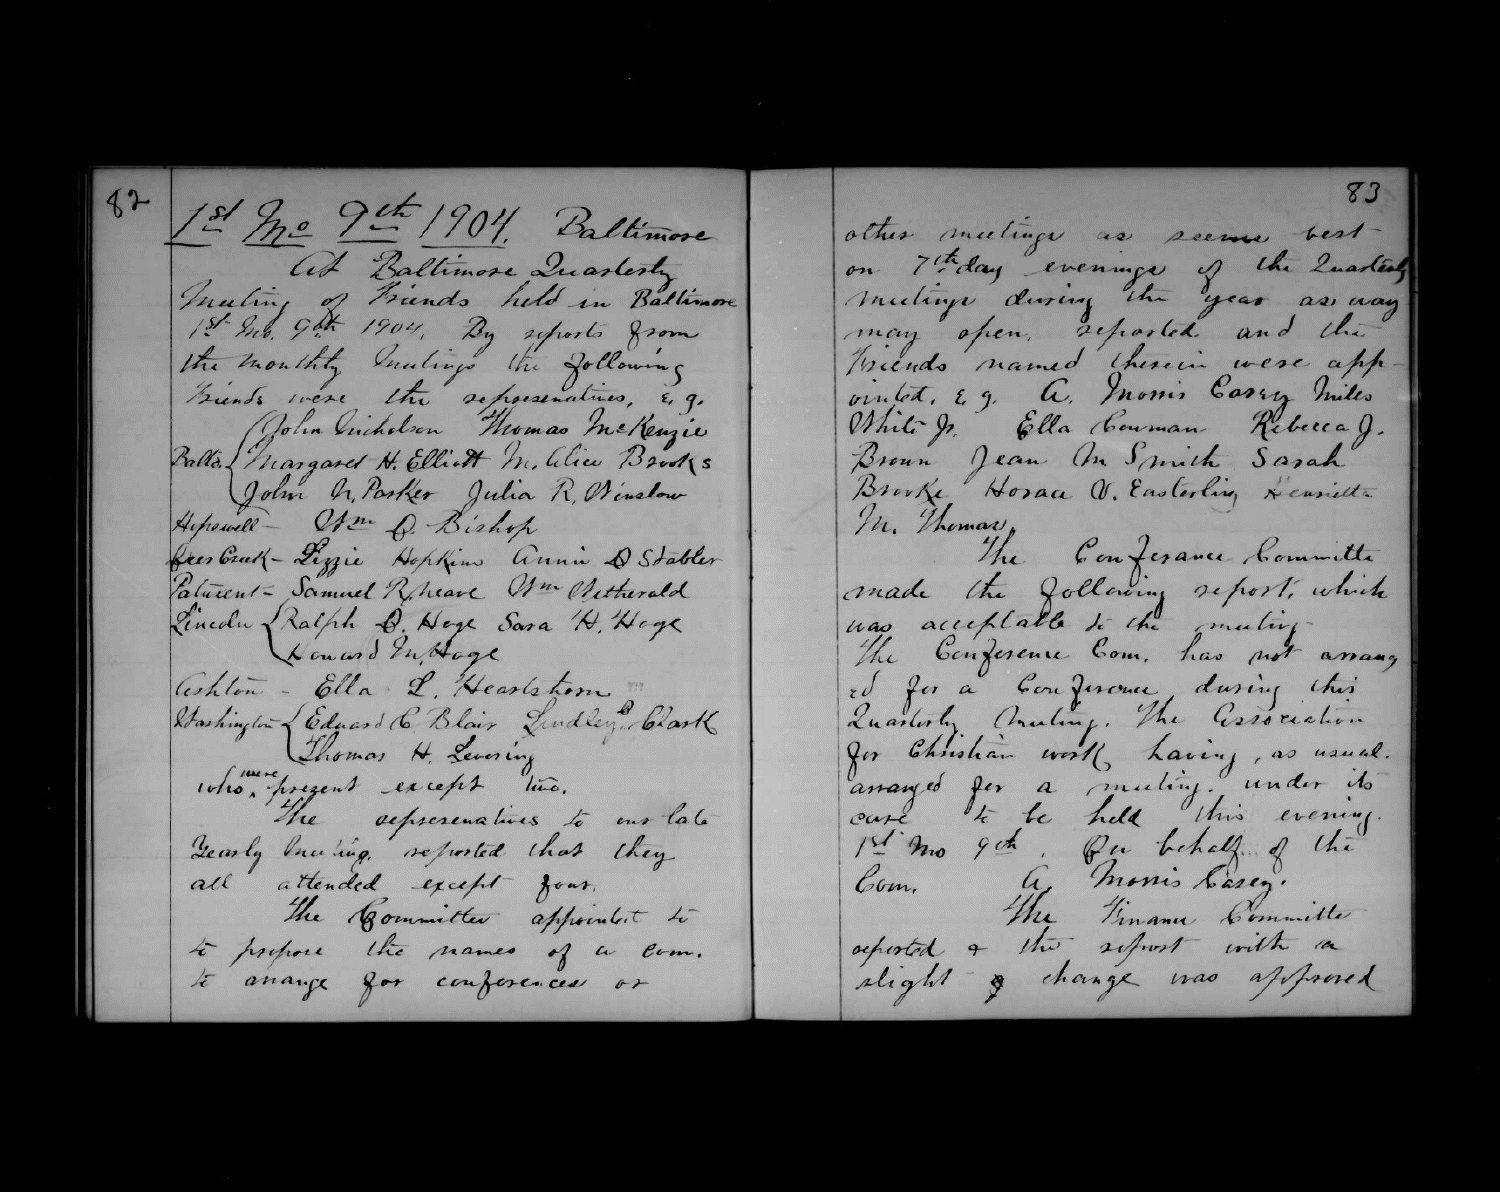 82
1st Mo 9th 1904. Baltimore
At Baltimore Quarterly
Meeting of Friends held in Baltimore
1st Mo. 9th 1904. By reports from
the monthly meetings the following
Friends were the represenatives, e.g.
John Nicholson Thomas McKenzie
Balto. Margaret H. Elliott M. Alice Brooks
John N. Parker Julia R. Winslow
Hopewell - Wm O. Bishop
Deer Creek - Lizzie Hopkins Annie O Stabler
Patuxent - Samuel R. Neave Wm Wetherald
Lincoln Ralph O. Hoge Sara H. Hoge
Howard M. Hoge
Ashton - Ella L. Heartshorn
Washington Edward C. Blair Lindley Clark
Thomas H. Levering
who were present except two.
The represenatives to our late
Yearly Meeting reported that they
all attended except four.
The Committee appointed to
to propose the names of a com.
to arrange for conferences or
83
other meetings as seems best
on 7th day evenings of the Quarterly
meetings during the year as way
may open, reported and the
Friends named therein were app-
ointed, e.g. A. Morris Carey Miles
White Jr. Ella Cowman Rebecca J.
Brown Jean M Smith Sarah
Brooke Horace V. Easterling Henrietta
M. Thomas.
The Conferance Committe
made the following report, which
was acceptable to the meeting.
The Conference Com. has not arrang
ed for a Conference during this
Quarterly Meeting. The Association
for Christian work having, as usual.
arranged for a meeting. under its
care to be held this evening.
1st Mo 9th. On behalf of the
Com. A. Morris Carey.
The Finance Committe
reported & the report with a
slight change was approved